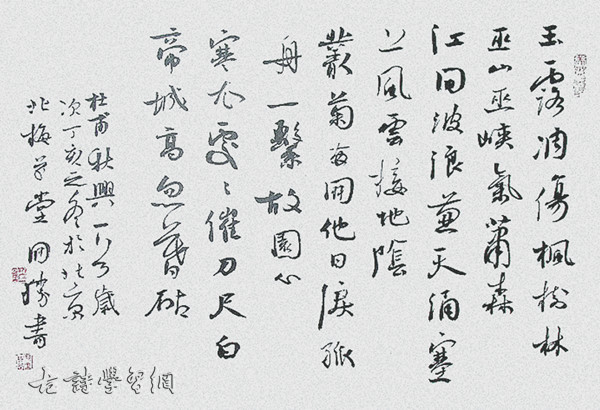 玉露凋傷楓樹林
巫山巫峽氣蕭森
江間波浪兼天涌塞
上風雲接地陰
叢菊兩開他日淚孤
舟一繫故園心
寒衣處〻催刀尺白
帝城高急暮砧
杜甫秋興一首歲
次丁亥之冬於北京
北梅草堂書
學習網